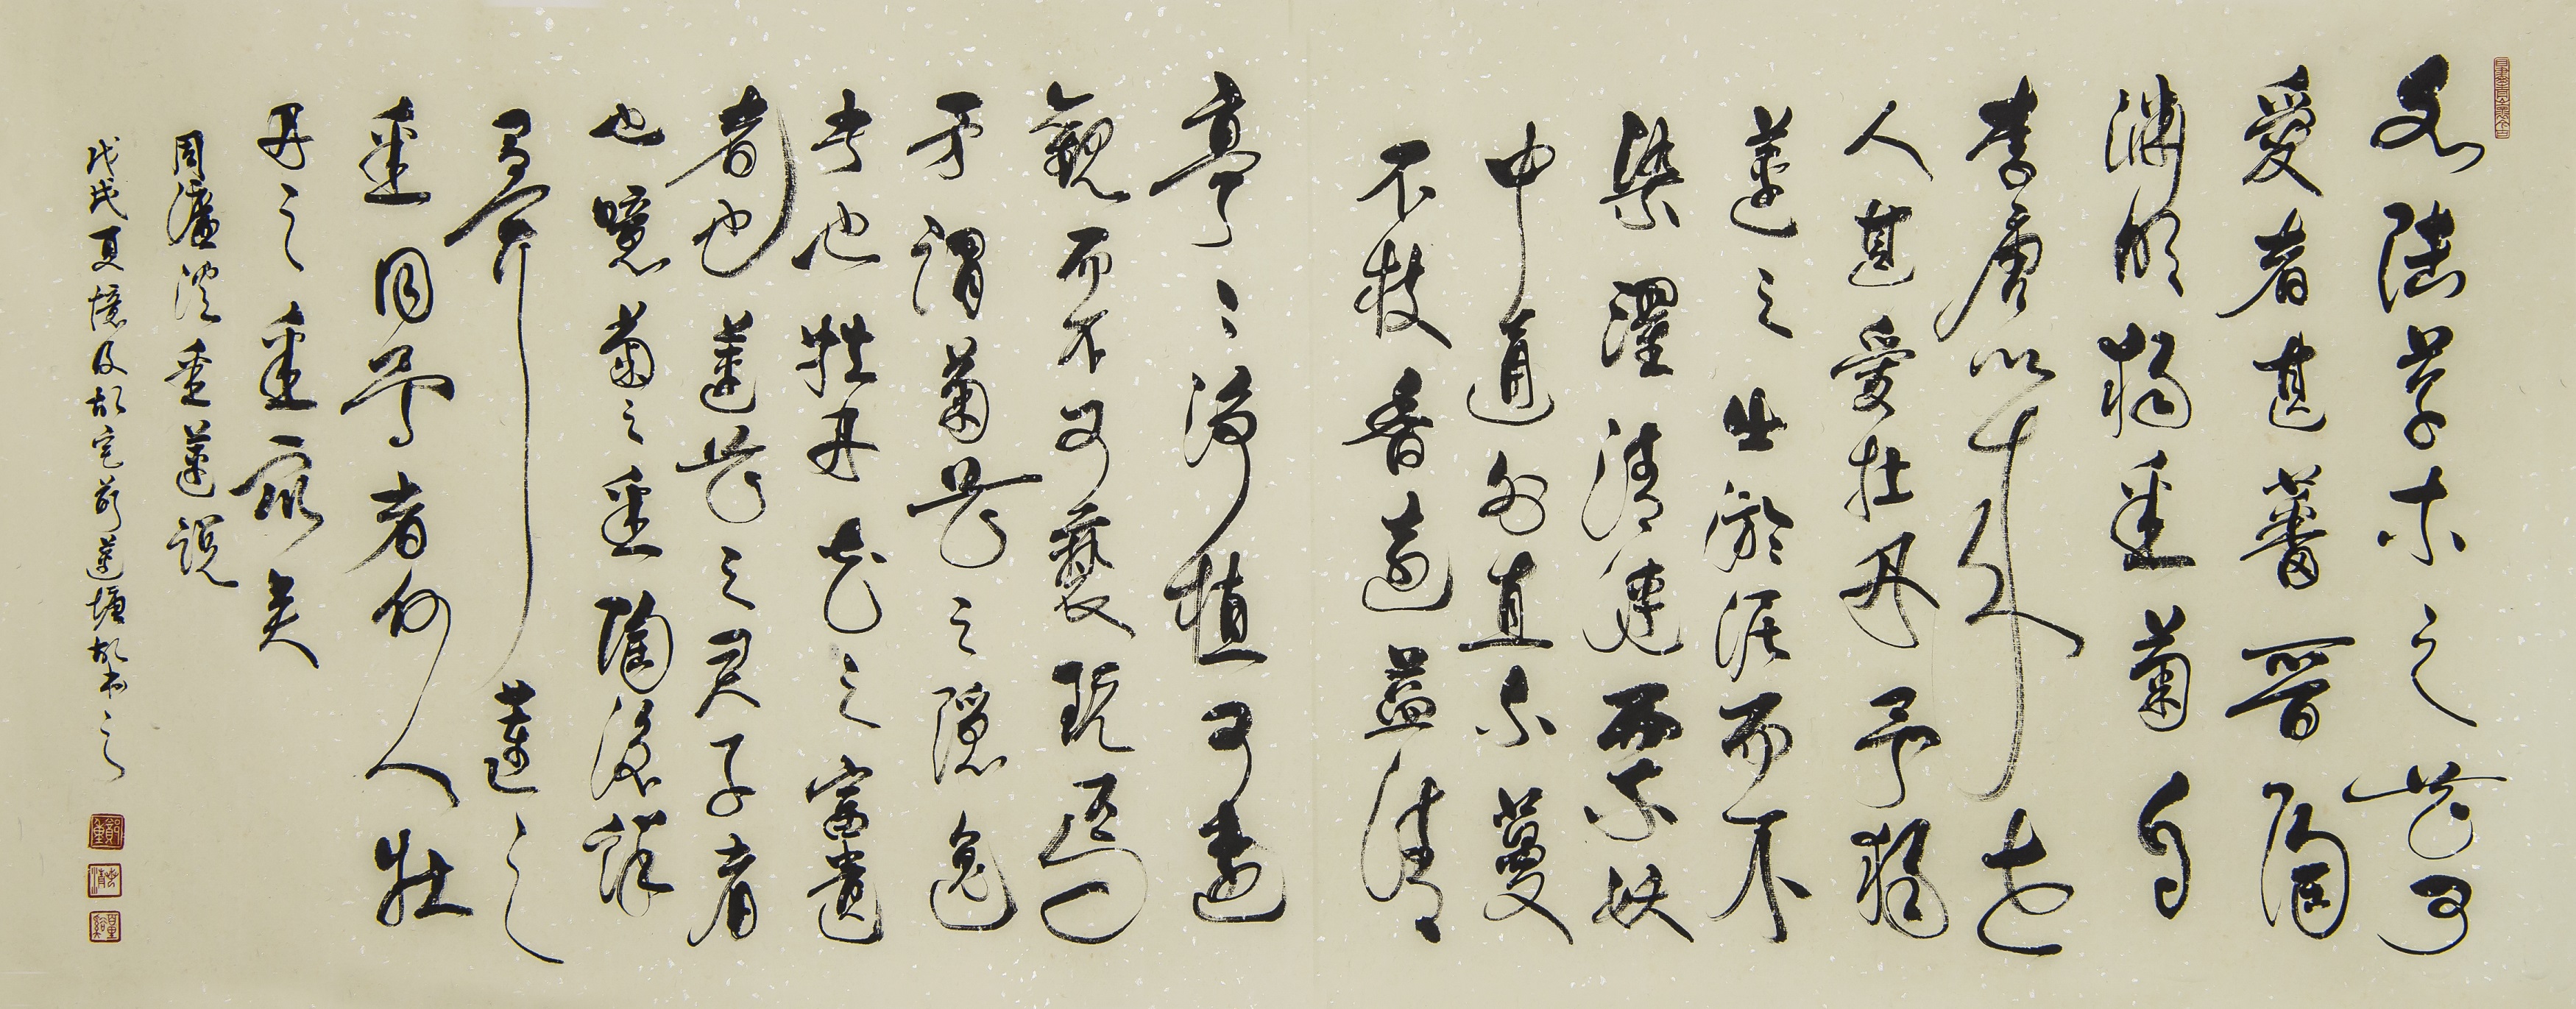 水陸草木之花可
愛者甚蕃晉陶
淵明獨愛菊自
李唐以來世
人甚愛牡丹予獨
蓮之出淤泥而不
染濯清漣而不妖
中通外直不蔓
不枝香遠益清
亭〻淨植可遠
觀而不可褻玩焉
予謂菊花之隱逸
者也牡丹花之富貴
者也蓮花之君子者
也噫菊之愛陶後鮮
有聞蓮之
愛同予者何人牡
丹之愛眾矣
周濂溪愛蓮說
戊戌夏憶及故宅前蓮塘故書之